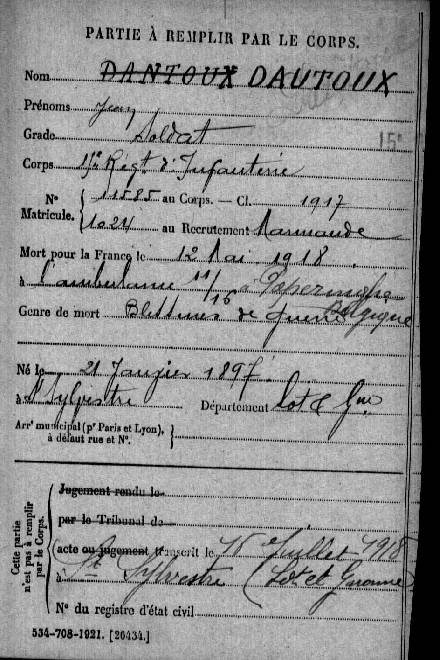 PARTIE À REMPLIR PAR LE CORPS.
Nom DANTOUX DAUTOUX
Prénoms Jean
Grade Soldat
15e
Corps Régt d'Infanterie
N° Matricule. 11585 au Corps. — Cl. 1917
1024 au Recrutement Marmande
Mort pour la France le 12 Mai 1918
à l'ambulance 11/16 à Poperinghe Belgique
Genre de mort Blessures de guerre
Né le 21 Janvier 1897
à St Sylvestre Département Lot & Gne
Arrt municipal (pr Paris et Lyon),
à défaut rue et N°.
Cette partie n'est pas à remplir par le Corps.
Jugement rendu le
par le Tribunal de
acte ou jugement transcrit le 16 Juillet 1918
à St Sylvestre (Lot et Garonne)
N° du registre d'état civil
534-708-1921. [26434.]